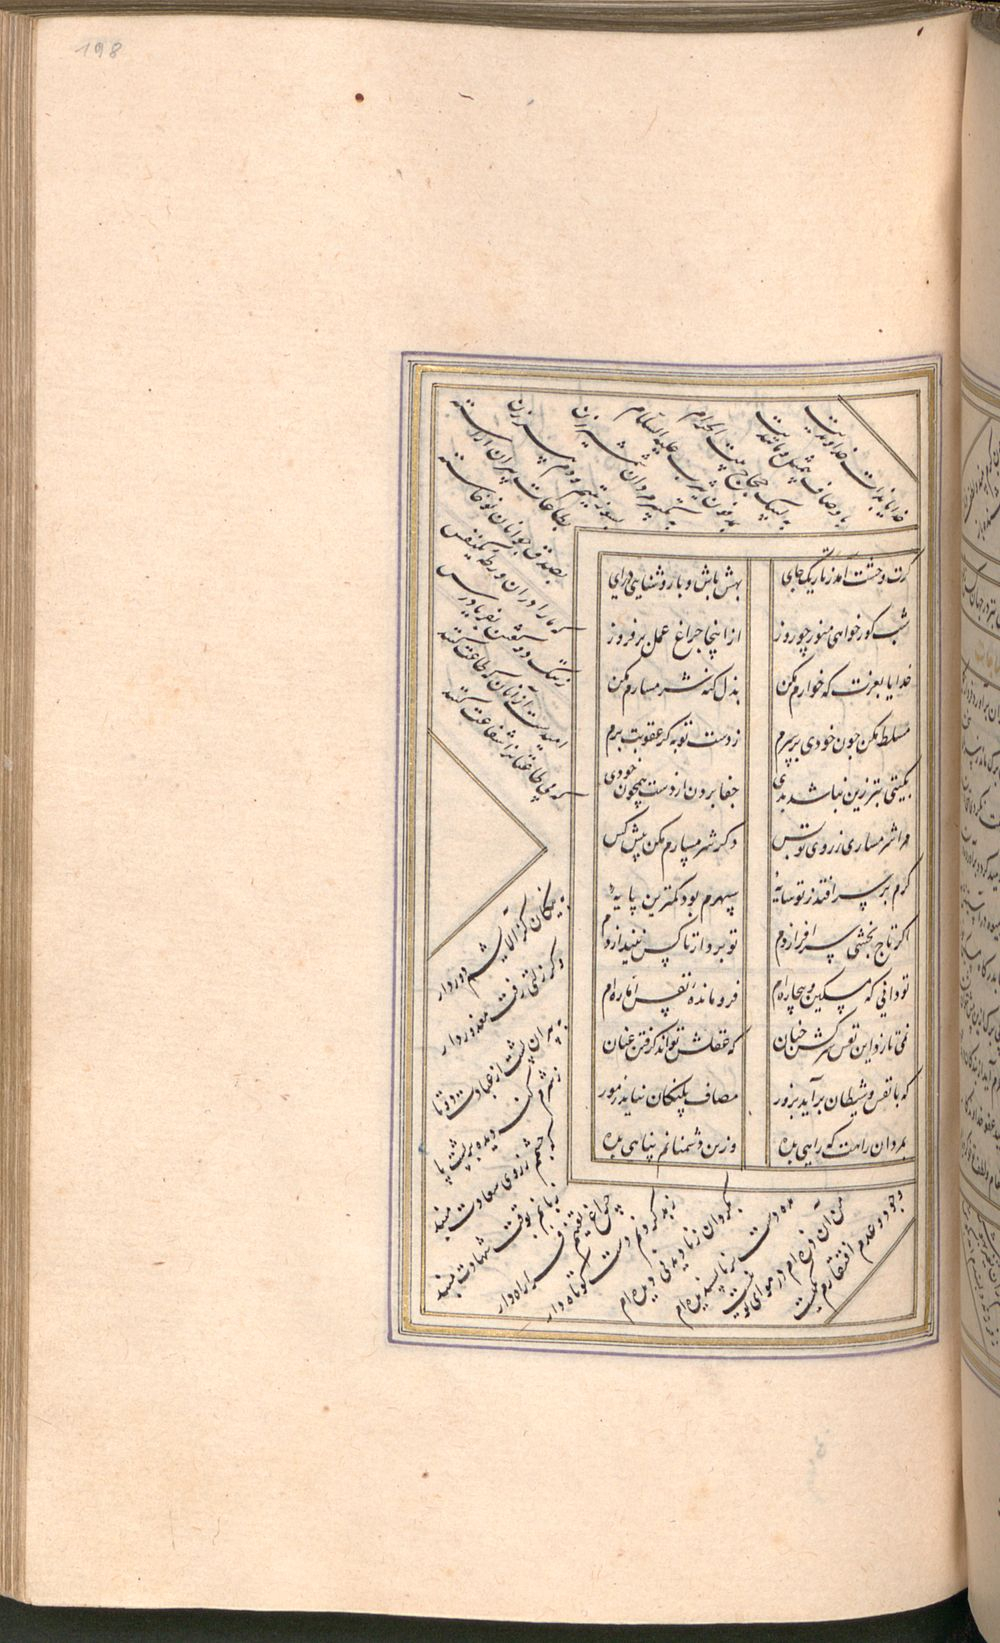 198
خدایا بذات خداوندیت
باوصاف بیمثل و مانندیت
به لبیک حجاج بیت الحرام
بمدفون یثرب علیه السلام
به تکبیر مردان شمشیر زن
بسوز یتیم و دم پیر زن
بطاعات پیران آراسته
بصدق جوانان نوخاسته
که ما را دران ورطه یکنفس
ز ننک دو کفتن بفریاد رس
امیدست از آنان که طاعت کنند
که بی طاعتانرا شفاعت کنند
کرت وحشت آمد ز تاریک جای بهش باش و با روشنایی درای
شب کور خواهی منور چو روز از اینجا چراغ عمل برفروز
خدایا بعزت که خوارم مکن بذل کنه شرمسارم مکن
مسلط مکن چون خودی بر سرم ز دست تو به کر عقوبت برم
بکیتی بتر زین نباشد بدی جفا بردن از دست همچون خودی
مرا شرمساری ز روی تو بس دکر شرمسارم مکن پیش کس
کرم بر سر افتد ز تو سایهٔ سپهرم بود کمترین پایهٔ
اکر تاج بخشی سر افرازدم تو بردار تا کس نیندازدم
تو دانی که مسکین و بیچاره ام فرو مانده نفس اماره ام
نمی تازد این نفس سرکش چنان که عقلش تواند کرفتن عنان
که با نفس و شیطان برآید بزور مصاف پلنکان نیاید ز مور
بمردان راهت که راهی بده وزین دشمنانم پناهی بده
به پاکان کز آلایشم دور دار
و کر زلتی رفت معذور دار
به پیران پشت از عبادت دوتا
ز شرم کنه دیده بر پشت پا
که چشمم ز روی سعادت مبند
زبانم بوقت شهادت مبند
چراغ یقینم فرا راه دار
ز بد کردنم دست کوتاه دار
بکردان ز نادیدنی دیده ام
مده دست بر ناپسندیده ام
من آن ذره ام در هوای تو نیست
وجود و عدم افتقارم یکیست